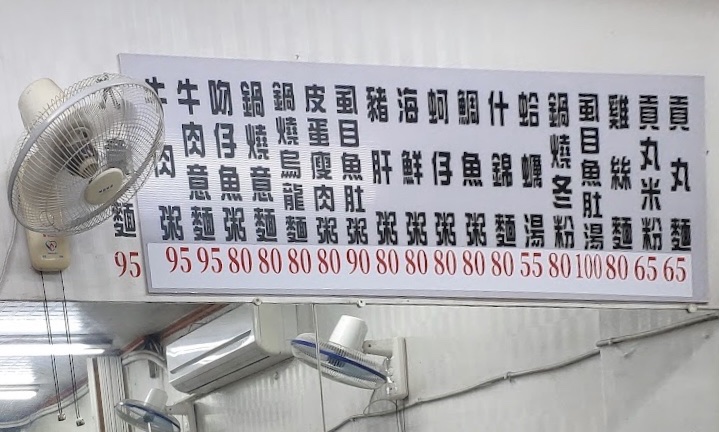 貢丸麵 65
貢丸米粉 65
雞絲麵 80
虱目魚肚湯 100
鍋燒冬粉 80
蛤蠣湯 55
什錦麵 80
鯛魚粥 80
蚵仔粥 80
海鮮粥 80
豬肝粥 80
虱目魚肚粥 90
皮蛋瘦肉粥 80
鍋燒烏龍麵 80
鍋燒意麵 80
吻仔魚粥 80
牛肉意麵 95
牛肉粥 95
牛肉麵 95